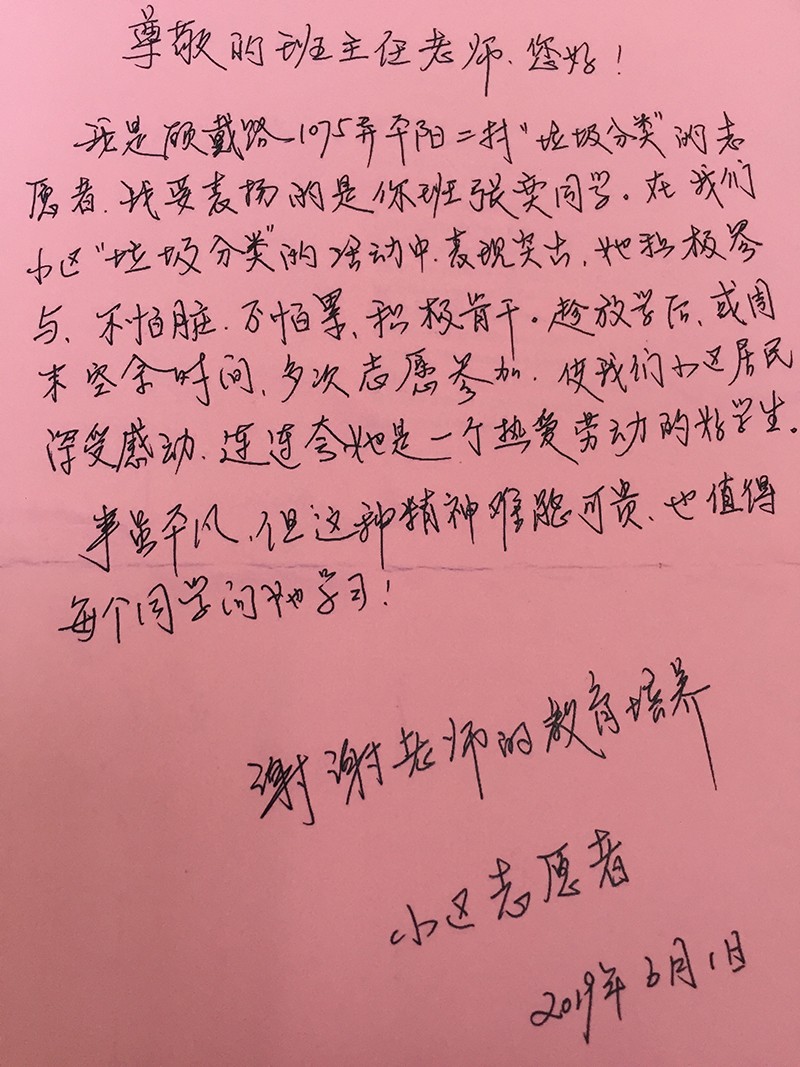 尊敬的班主任老师、您好！
我是顾戴路1075弄平阳二村“垃圾分类”的志
愿者、我要表扬的是你班张奕同学。在我们
小区“垃圾分类”的活动中、表现突出，她积极参
与、不怕脏、不怕累、积极肯干。趁放学后、或周
末空余时间、多次志愿参加、使我们小区居民
深受感动、连连夸她是一个热爱劳动的好学生。
事虽平凡、但这种精神难能可贵、也值得
每个同学向她学习！
谢谢老师的教育培养
小区志愿者
2019年6月1日